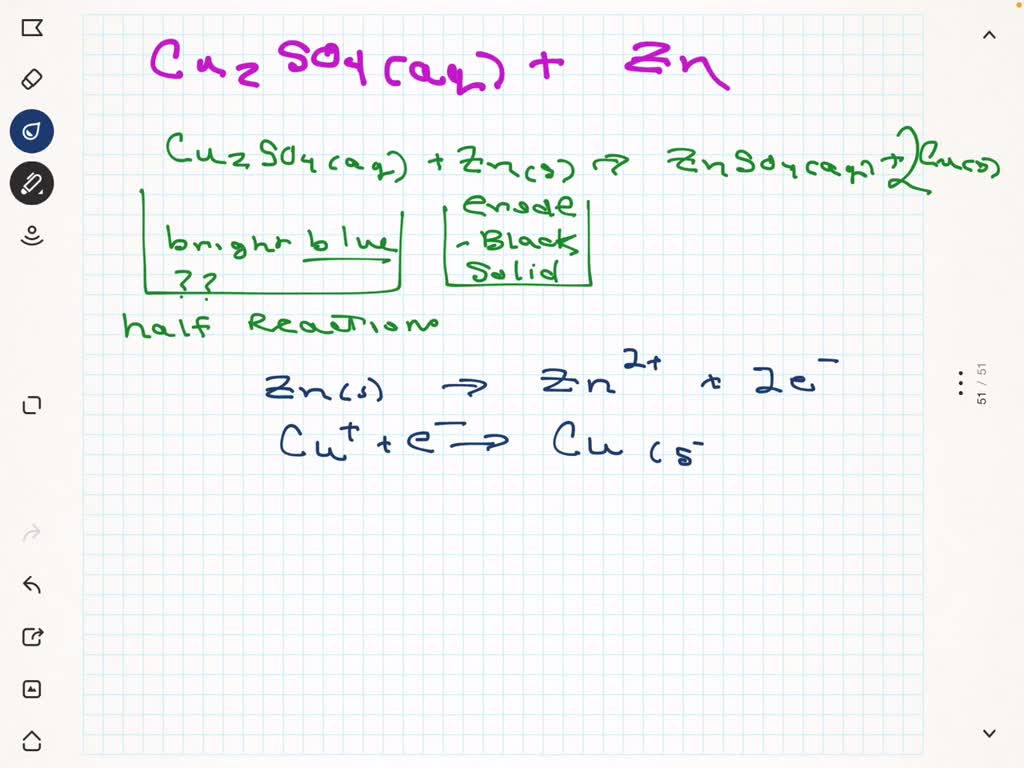 Cu₂SO₄(aq) + Zn
Cu₂SO₄(aq) + Zn(s) → ZnSO₄(aq) + 2Cu(s)
bright blue
??
erode
- Black
Solid
half Reactions
Zn(s) → Zn²⁺ + 2e⁻
Cu⁺ + e⁻ → Cu (s
51 / 51